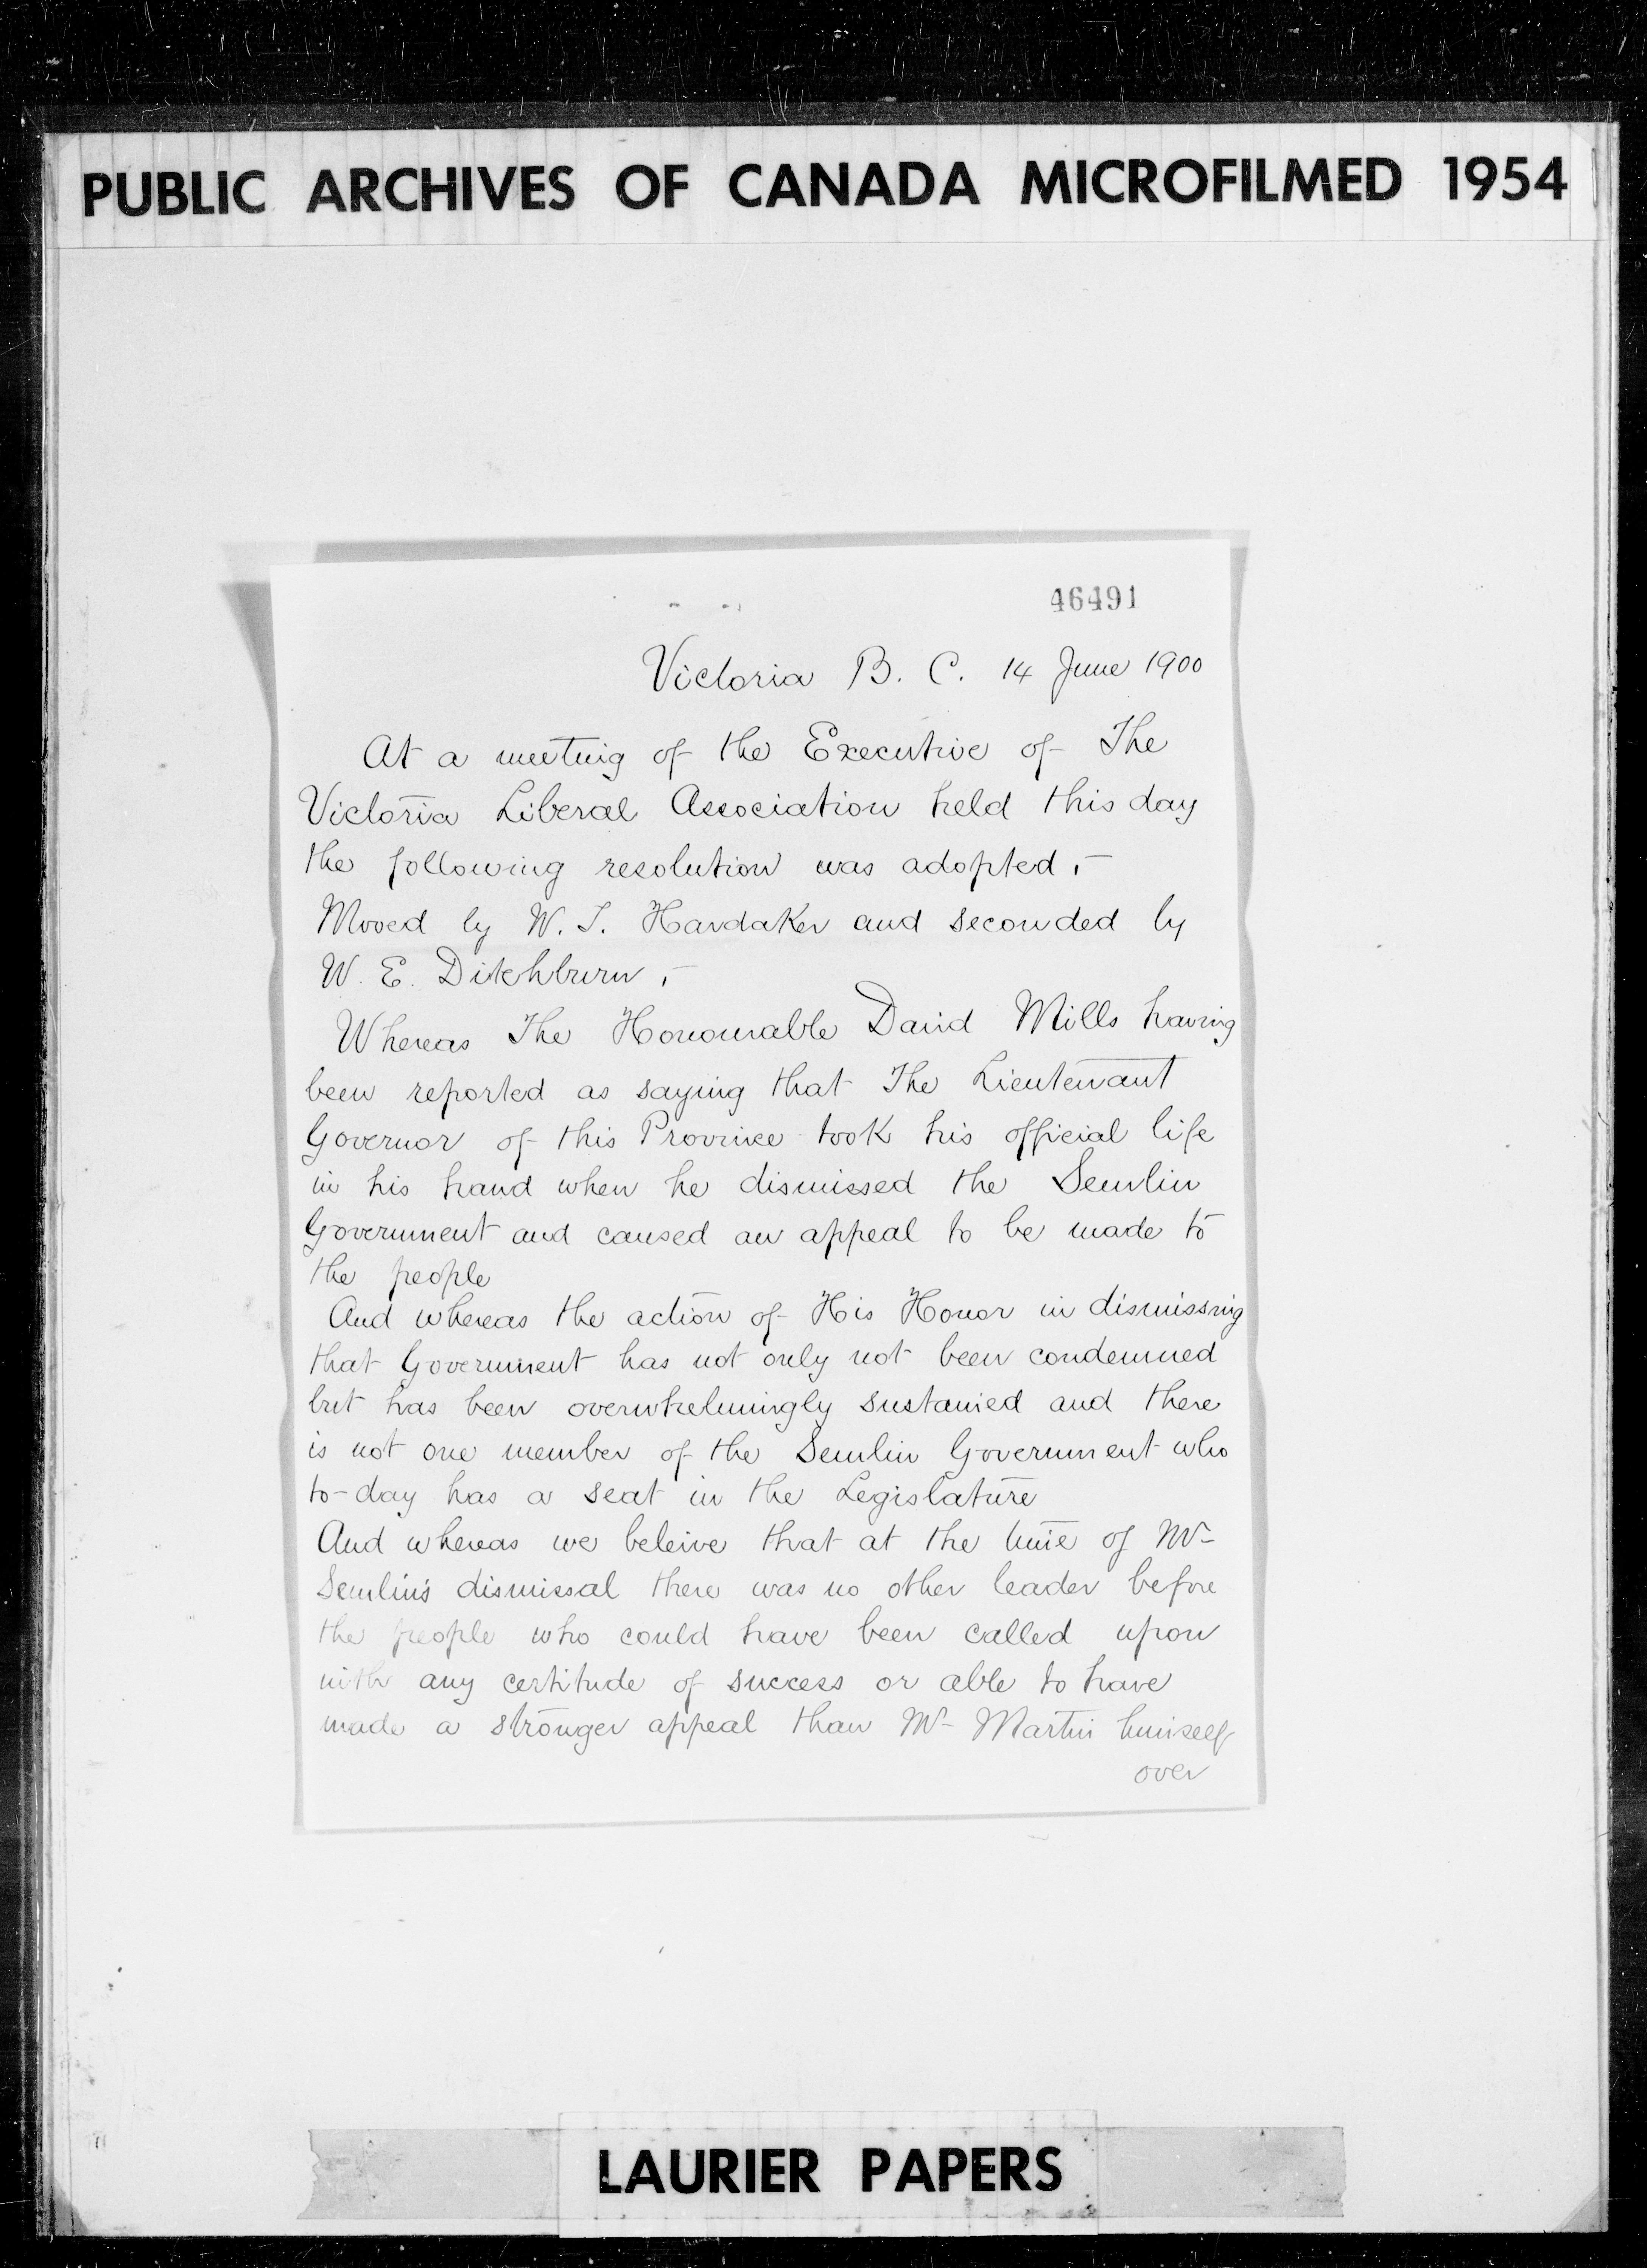 PUBLIC ARCHIVES OF CANADA MICROFILMED 1954
46491
Victoria B. C. 14 June 1900
At a meeting of the Executive of The
Victoria Liberal Association held this day
the following resolution was adopted,-
Moved by W. T. Hardaker and seconded by
W. E. Ditchburn,-
Whereas The Honourable David Mills having
been reported as saying that The Lieutenant
Governor of this Province took his official life
in his hand when he dismissed the Semlin
Government and caused an appeal to be made to
the people
And whereas the action of His Honor in dismissing
that Government has not only not been condemned
but has been overwhelmingly sustained and there
is not one member of the Semlin Government who
to-day has a seat in the Legislature
And whereas we beleive that at the time of Mr
Semlin's dismissal there was no other leader before
the people who could have been called upon
with any certitude of success or able to have
made a stronger appeal than Mr Martin himself
over
LAURIER PAPERS